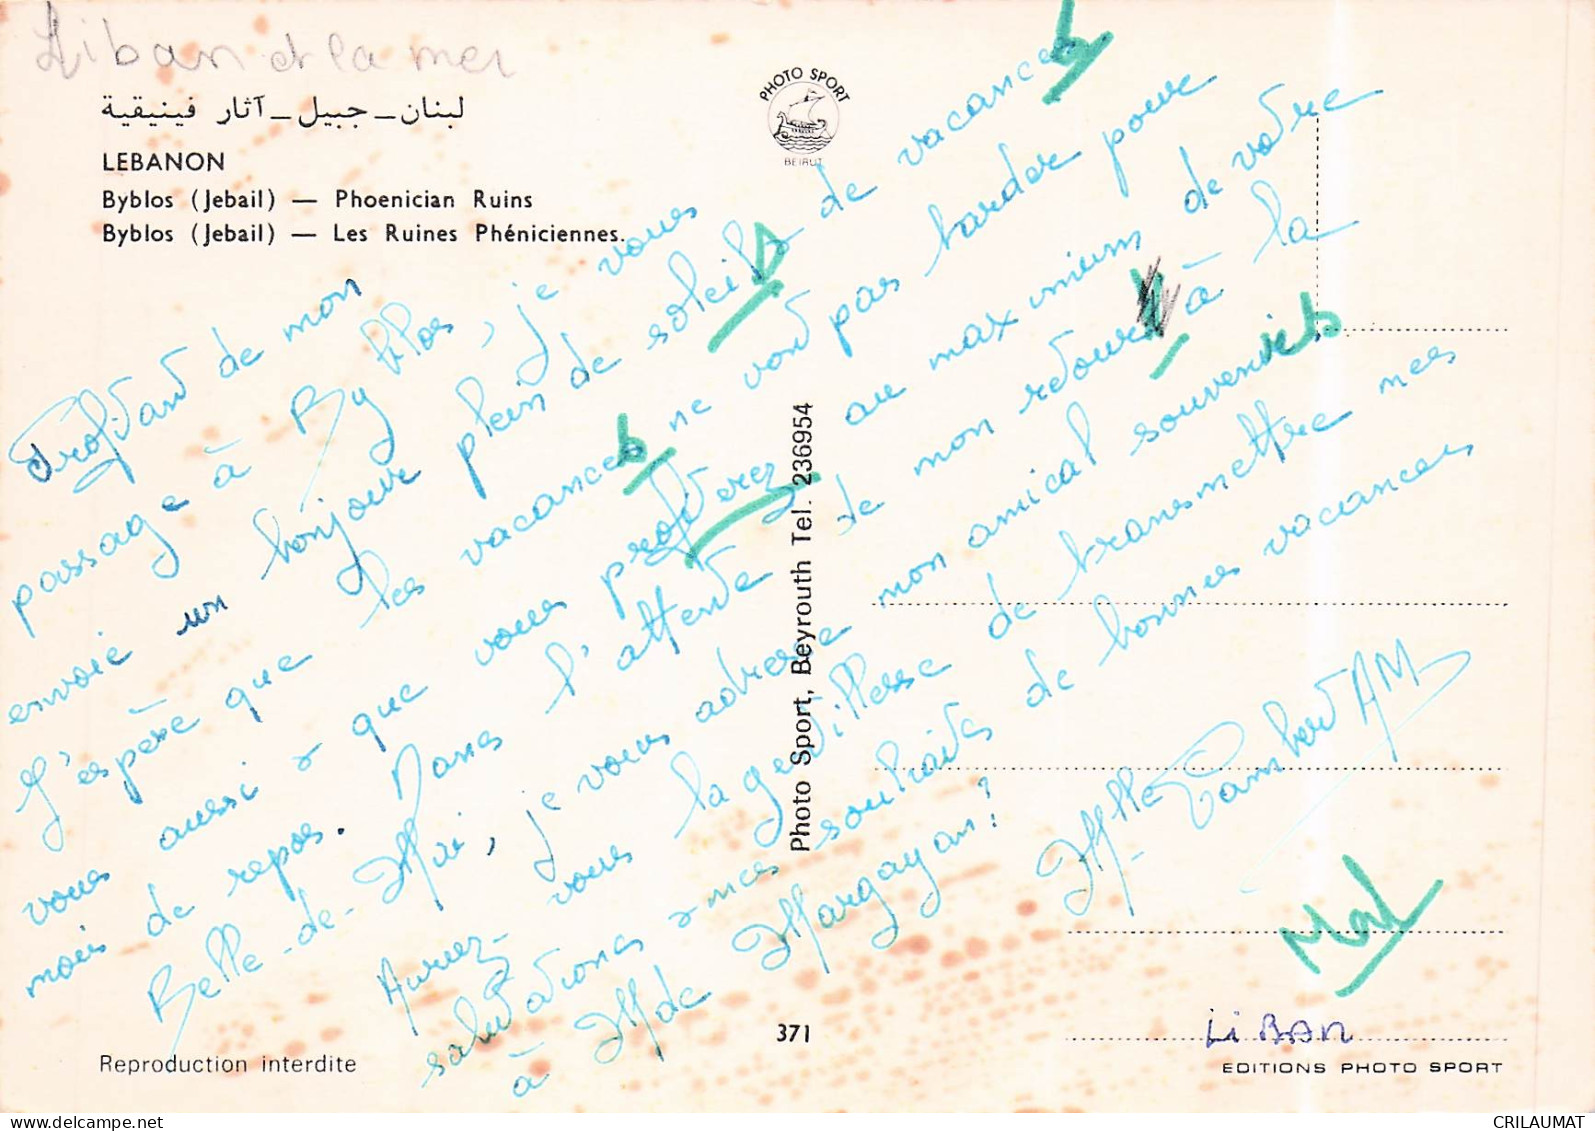 Liban et la mer
لبنان - جبيل - آثار فينيقية
LEBANON
Byblos (Jebail) — Phoenician Ruins
Byblos (Jebail) — Les Ruines Phéniciennes.
PHOTO SPORT
BEIRUT
Profitant de mon
passage à Byblos, je vous
envoie un bonjour plein de soleil & de vacances
J'espère que les vacances ne vont pas tarder pour
vous aussi & que vous profiterez au maximum de votre
mois de repos. Dans l'attente de mon retour à la
Belle-de-Mai, je vous adresse mon amical souvenir
Aurez-vous la gentillesse de transmettre mes
salutations & mes souhaits de bonnes vacances
à Mde Margayan?
Mlle Lambert AM
Mat
LiBAN
Photo Sport, Beyrouth Tel. 236954
371
Reproduction interdite
EDITIONS PHOTO SPORT
CRILAUMAT